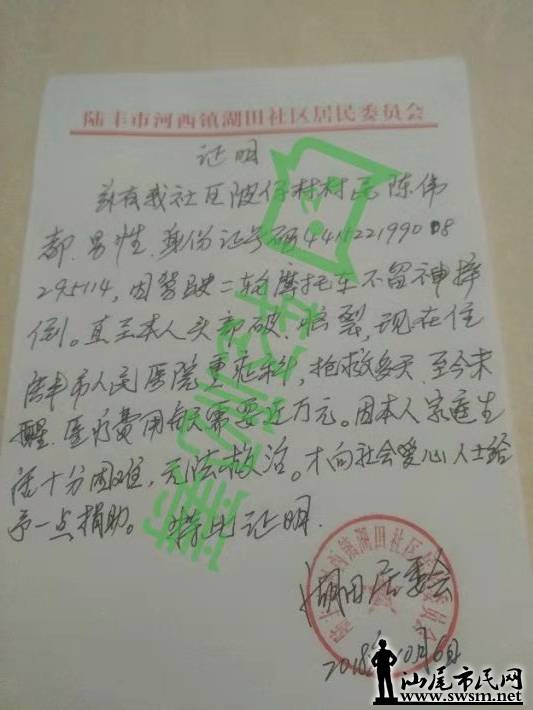 陆丰市河西镇湖田社区居民委员会
证明
兹有我社区陂仔村村民陈伟
都.男性.身份证号码
因驾驶二轮摩托车不留神摔
倒。直至本人头部破.临裂,现在住
陆丰市人民医院重症科,抢救多天.至今未
醒.医疗费用每天需要近万元。因本人家庭生
活十分困难,无法救治。才向社会爱心人士给
予一点捐助。特此证明.
湖田居委会
2018年10月6日
汕尾市民网
www.swsm.net